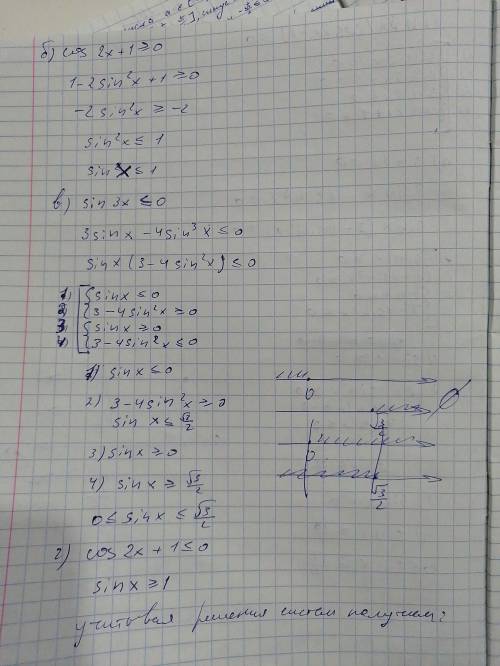 б) cos 2x+1≥0
1-2sin²x+1≥0
-2sin²x≥-2
sin²x≤1
sin x≤1
в) sin 3x≤0
3sinx-4sin³x≤0
sinx(3-4sin²x)≤0
1) sinx≤0
2) 3-4sin²x≥0
3) sinx≥0
4) 3-4sin²x≤0
1) sinx≤0
0
2) 3-4sin²x≥0
∅
sin x≤√3/2
√3/2
3) sinx≥0
0
4) sinx≥√3/2
√3/2
0≤sinx≤√3/2
г) cos 2x+1≤0
sinx≥1
учитовая решения систем получаем: